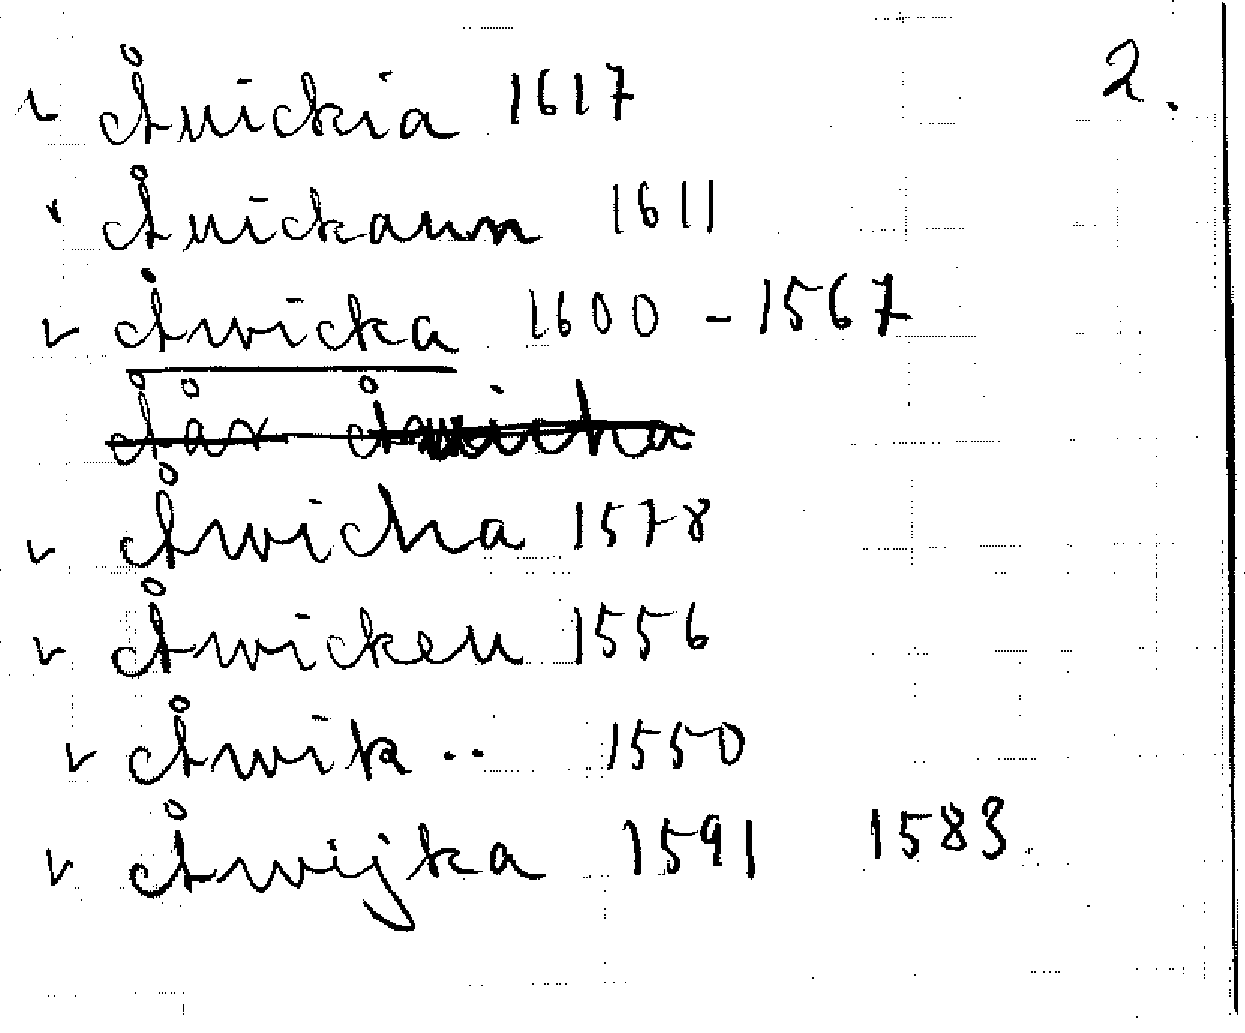 2.
v Åuickia 1617
v Åuickaum 1611
v Åwicka 1600 - 1567
v Åwicha 1578
v Åwicken 1556
v Åwik .. 1550
v Åwijka 1591 1583